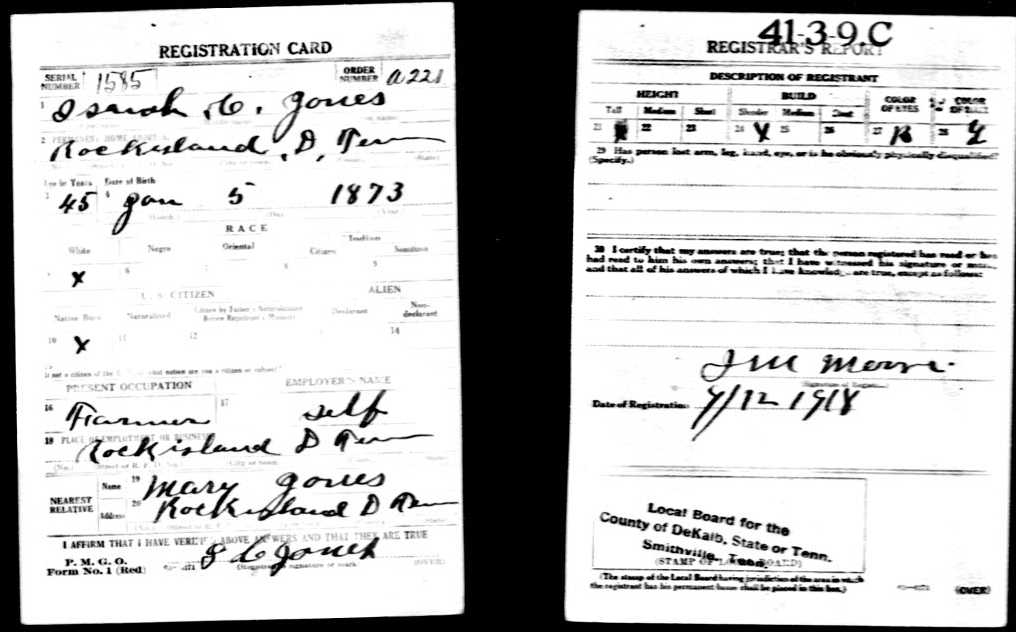 REGISTRATION CARD
SERIAL NUMBER 1585 ORDER NUMBER A221
1 Isaiah C. Jones
2 PERMANENT HOME ADDRESS
Rockisland, D, Tenn
Age in Years Date of Birth
3 45 4 Jan 5 1873
(Month.) (Day) (Year)
RACE
White Negro Oriental Indian
Citizen Noncitizen
X 6 7 8 9
U. S. CITIZEN ALIEN
Native Born Naturalized Citizen by Father's Naturalization Before Registrant's Majority Declarant Non-declarant
10 X 11 12 14
If not a citizen of the U. S., of what nation are you a citizen or subject?
PRESENT OCCUPATION EMPLOYER'S NAME
16 Farmer 17 self
18 PLACE OF EMPLOYMENT OR BUSINESS
Rockisland D Tenn
(No.) (Street or R. F. D. No.) (City or town)
NEAREST RELATIVE Name 19 Mary Jones
Address 20 Rockisland D Tenn
I AFFIRM THAT I HAVE VERIFIED ABOVE ANSWERS AND THAT THEY ARE TRUE
P. M. G. O.
Form No. 1 (Red) I C Jones
(Registrant's signature or mark) (OVER)
41-3-9 C
REGISTRAR'S REPORT
DESCRIPTION OF REGISTRANT
HEIGHT BUILD COLOR OF EYES COLOR OF HAIR
Tall Medium Short Slender Medium Stout
21 X 22 23 24 X 25 26 27 B 28
29 Has person lost arm, leg, hand, eye, or is he obviously physically disqualified?
(Specify.)
30 I certify that my answers are true; that the person registered has read or has
had read to him his own answers; that I have witnessed his signature or mark,
and that all of his answers of which I have knowledge are true, except as follows:
J M Moore
(Signature of Registrar)
Date of Registration 9/12 1918
Local Board for the
County of DeKalb, State of Tenn.
Smithville, Tenn.
(STAMP OF LOCAL BOARD)
(The stamp of the Local Board having jurisdiction of the area in which
the registrant has his permanent home shall be placed in this box.)
(OVER)